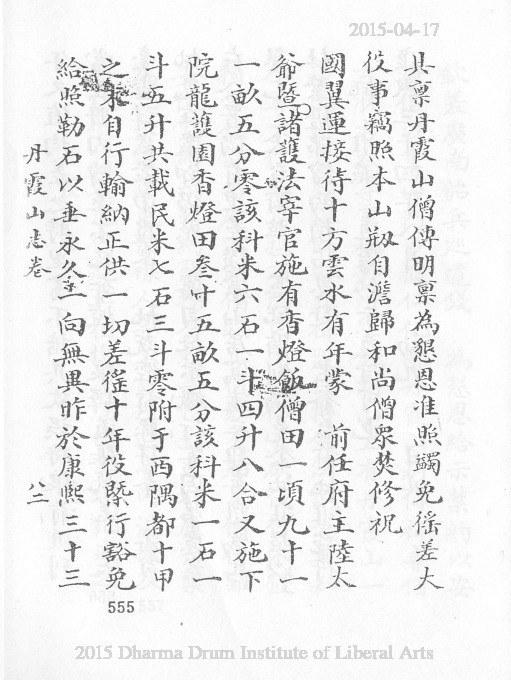 2015-04-17
具稟丹霞山僧傳明稟為懇恩准照蠲免徭差大
役事竊照本山剏自澹歸和尚僧眾焚修祝
國翼運接待十方雲水有年蒙 前任府主陸太
爺暨諸護法宰官施有香燈飯僧田一頃九十一
一畝五分零該科米六石一斗四升八合又施下
院龍護園香燈田叁叶五畝五分該科米一石一
斗五升共載民米七石三斗零附于西隅都十甲
之末自行輸納正供一切差徭十年役槩行豁免
給照勒石以垂永久一向無異昨於康熙三十三
丹霞山志卷
八三
555
2015 Dharma Drum Institute of Liberal Arts